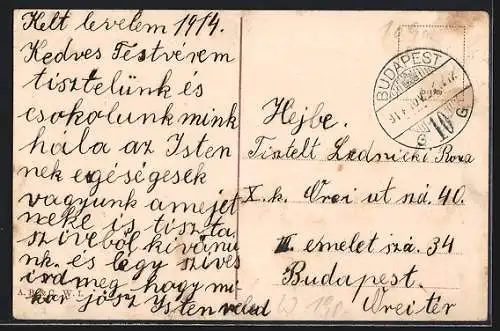 Kelt levelem 1914.
Kedves Testvérem
tisztelünk és
csokolunk mink
hála az Isten
nek egéségesek
vagyunk amejet
neke is tiszta
szivebŏl kivánu
nk. és légy szives
ird meg hogy mi
kor jösz Isten veled
A. B. & C. W. I.
BUDAPEST
10
G G
Hejbe.
Tisztelt Lednicki Roza
X. k. Orei ut ná. 40.
III emelet szá. 34
Budapest.
Oreitér